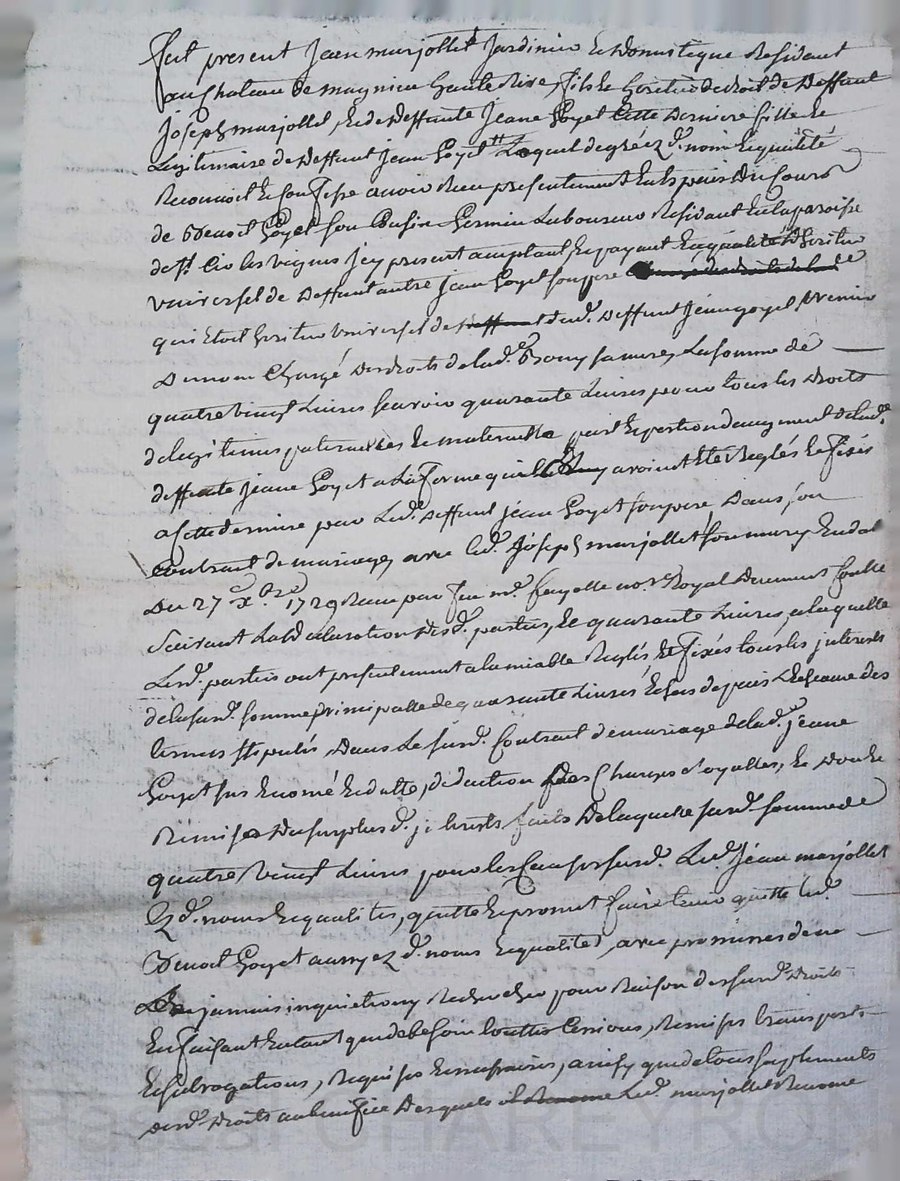 fut present Jean marjollet Jardinier et Domestique Residant
au Chateau de magnieu hauterive, fils et heritier de droit de deffunt
Joseph marjollet, et de deffunte Jeane Goyet Cette derniere fille et
Legitimaire de deffunt Jean Goyet Lequel de gré ez d. nom et qualité
Reconnoit et Confesse avoir Reçu presentement En Especes du Cours
de Benoit Goyet son Cousin Germain Laboureur Residant En la paroisse
de St. les vignes Jcy present acceptant et payant En qualité d'heritier
universel de deffunt autre Jean Goyet son pere
qui Etoit heritier universel de dud. deffunt Jean goyet premier
du nom Chargé des droits de lad. sa mere, La somme de
quatre vingt Livres sçavoir quarante Livres pour tous les droits
de legitimes paternelles et maternelle part et portion d'augment de lad.
deffunte Jeane Goyet a la forme qu'ils avoient Eté Reglés et fixés
a Cette derniere par Led. deffunt Jean Goyet son pere Dans son
Contrant de mariage, avec led. Joseph marjollet son mary En datte
du 27e xbre 1729 Reçu par feu me. fayolle nore Royal Duement Conllé
Suivant la declaration desd. parties, et quarante Livres, a laquelle
Lesd. parties ont presentement a l'amiable Reglés et fixés tous les jnterests
de la susd. somme principalle de quarante Livres Echus depuis L'Echeance des
termes stipulés, Dans Le susd. Contrant de mariage de lad. jeane
Goyet sus Enomé et datté, déduction des Charges Royalles, et don et
Remise du surplus d. jnterests faits De laquelle susd. somme de
quatre Vingt Livres pour les Causes susd. Led. Jean marjollet
Ez d. noms et qualites, quitte et promet faire tenir quitte led.
Benoit Goyet aussy ez d. noms et qualités, avec promesses de ne
jamais inquieter ny Rechercher pour Raison des susd. Droits
En faisant En tant que de besoin touttes Cessions, Remises transports
Et subrogations, Requises Et necessaires, ainsy que de tous suplements
desd. Droits au benefice Desquels Led. marjollet Renonce
Pascal CHAREYRON